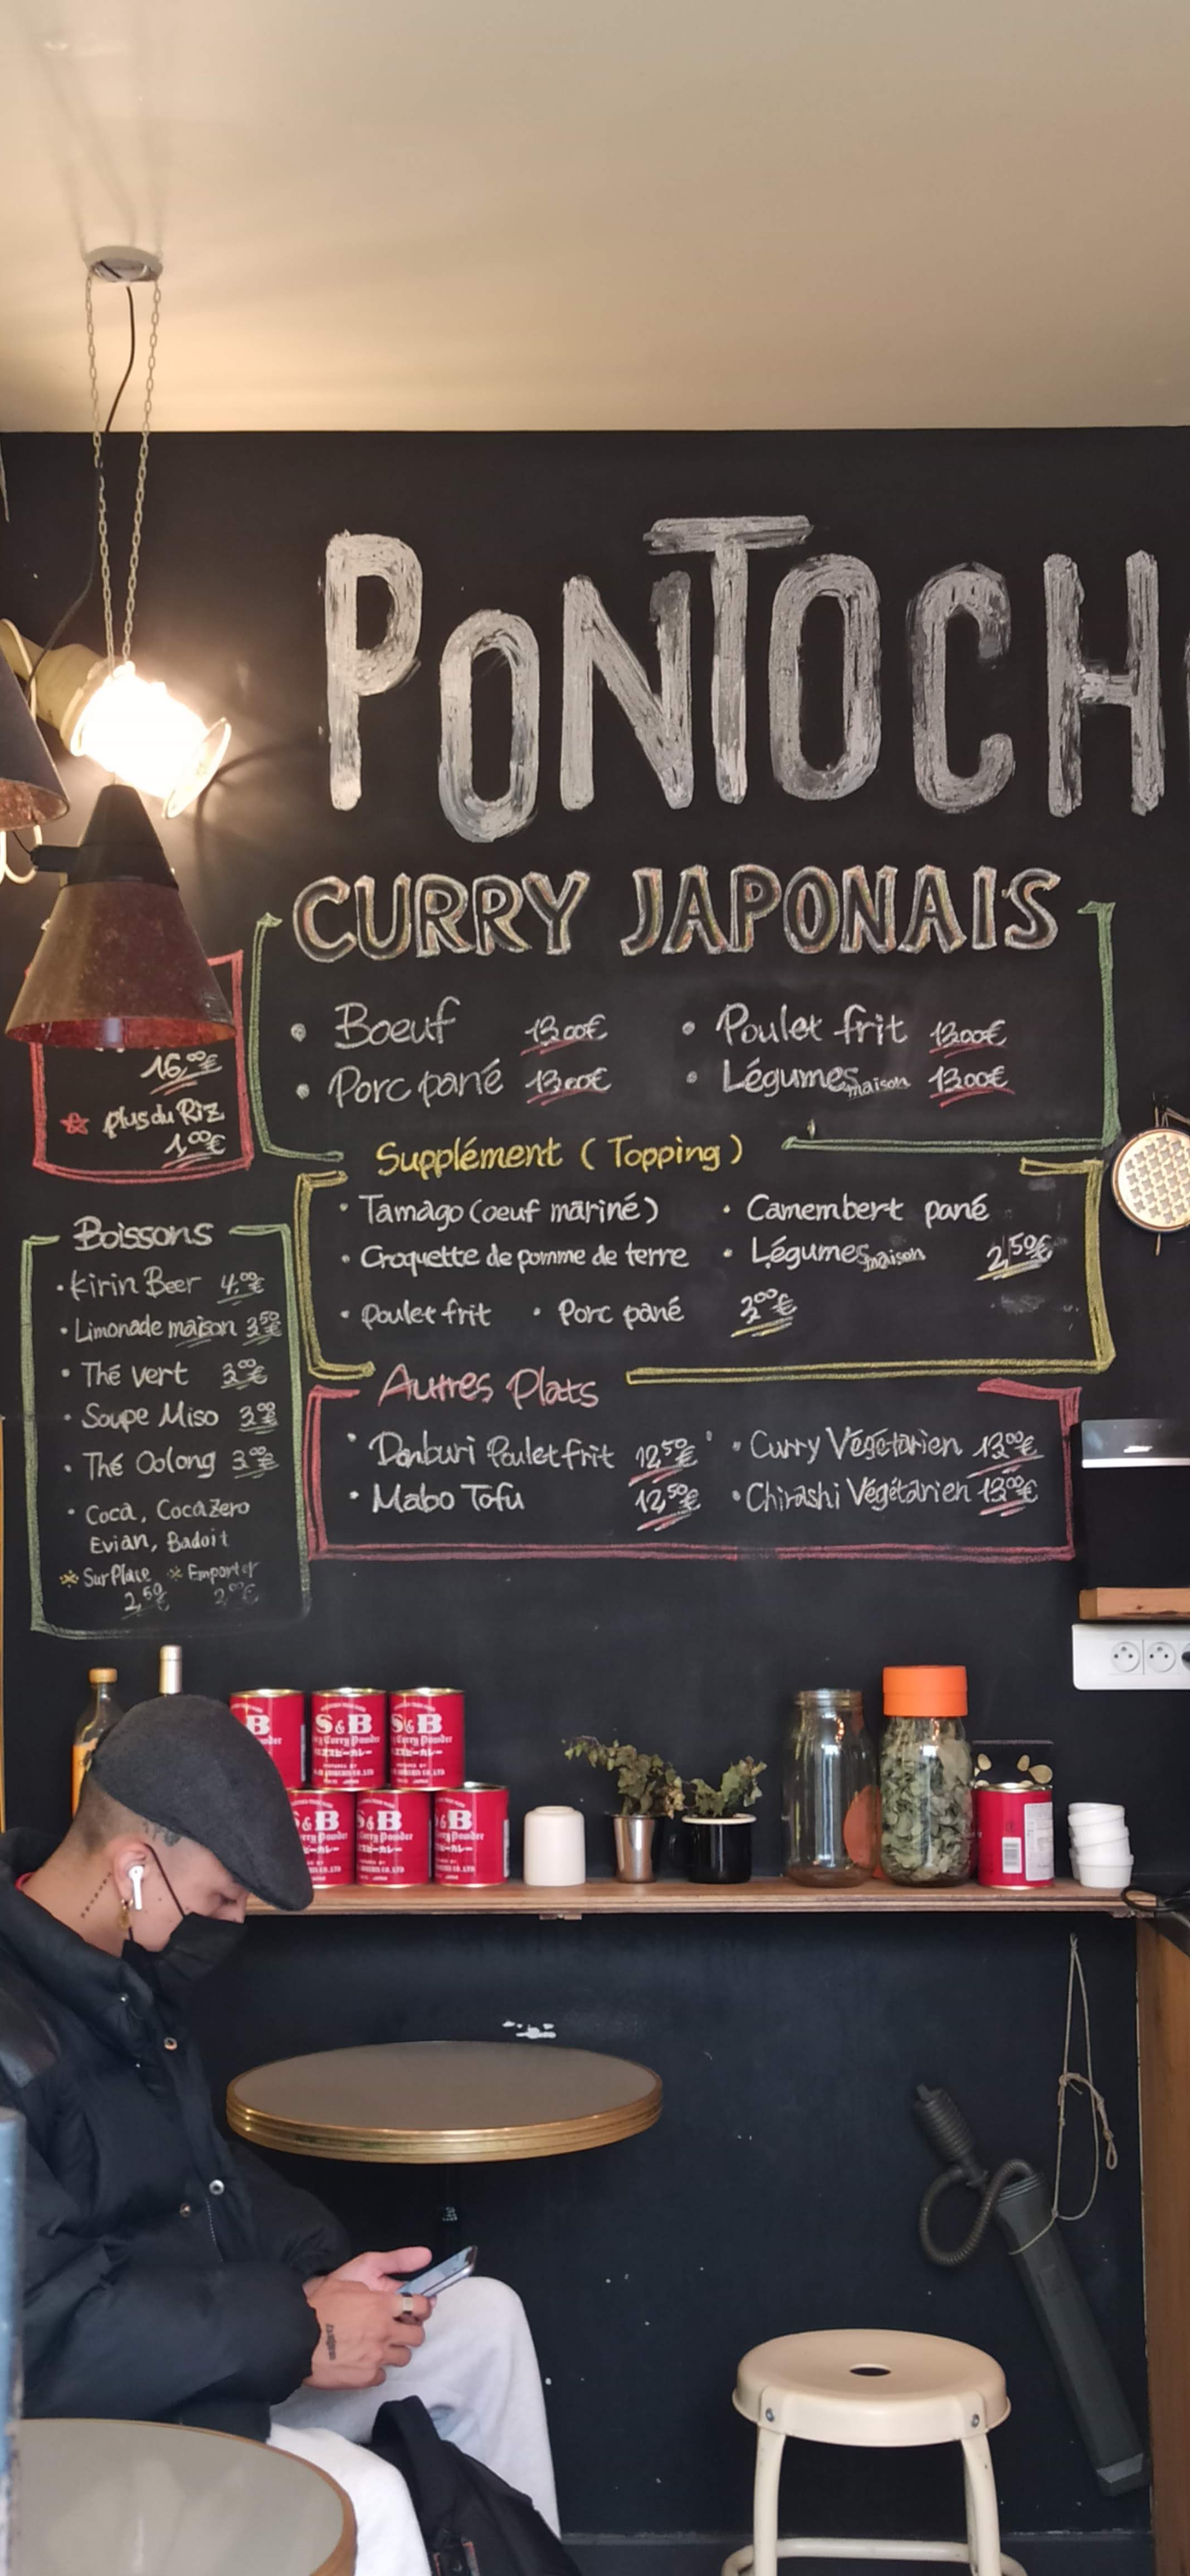 PONTOCH
CURRY JAPONAIS
• Boeuf 13.00€ • Poulet frit 13.00€
• Porc pané 13.00€ • Légumes maison 13.00€
16,00€
plus du Riz
1,00€
Supplément ( Topping )
• Tamago (oeuf mariné) • Camembert pané
• Croquette de pomme de terre • Légumes maison 2,50€
• Poulet frit • Porc pané 3,00€
Autres Plats
• Donburi Poulet frit 12,50€ • Curry Végétarien 13,00€
• Mabo Tofu 12,50€ • Chirashi Végétarien 13,00€
Boissons
• Kirin Beer 4,00€
• Limonade maison 3,50€
• Thé vert 3,00€
• Soupe Miso 3,00€
• Thé Oolong 3,00€
• Coca, Coca Zero
Evian, Badoit
※ Sur Place ※ Emporter
2,50€ 2,00€
B S&B S&B
Curry Powder
S&B S&B S&B
Curry Powder